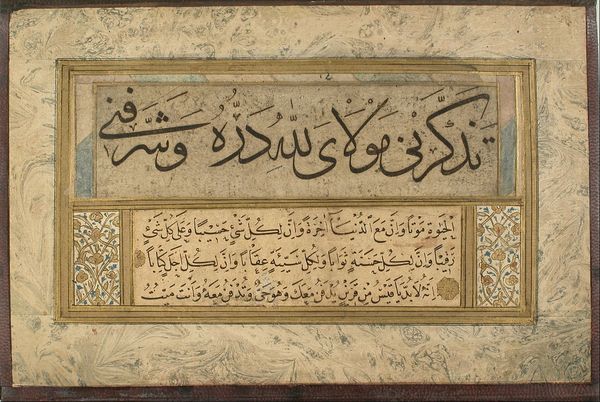 تَذَكَّرَنِي مَوْلَايَ لِلّٰهِ دَرُّهُ وَشَرَّفَنِي
الْحَيٰوةِ مَوْتًا وَاِنَّ مَعَ الدُّنْيَا اٰخِرَةً وَاِنَّ لِكُلِّ شَيْءٍ حَسِيبًا وَعَلٰى كُلِّ شَيْءٍ
رَقِيبًا وَاِنَّ لِكُلِّ حَسَنَةٍ ثَوَابًا وَلِكُلِّ سَيِّئَةٍ عِقَابًا وَاِنَّ لِكُلِّ اَجَلٍ كِتَابًا
اِنَّهُ لَا بُدَّ يَا قَيْسُ مِنْ قَرِينٍ يُدْفَنُ مَعَكَ وَهُوَ حَيٌّ وَتُدْفَنُ مَعَهُ وَاَنْتَ مَيِّتٌ